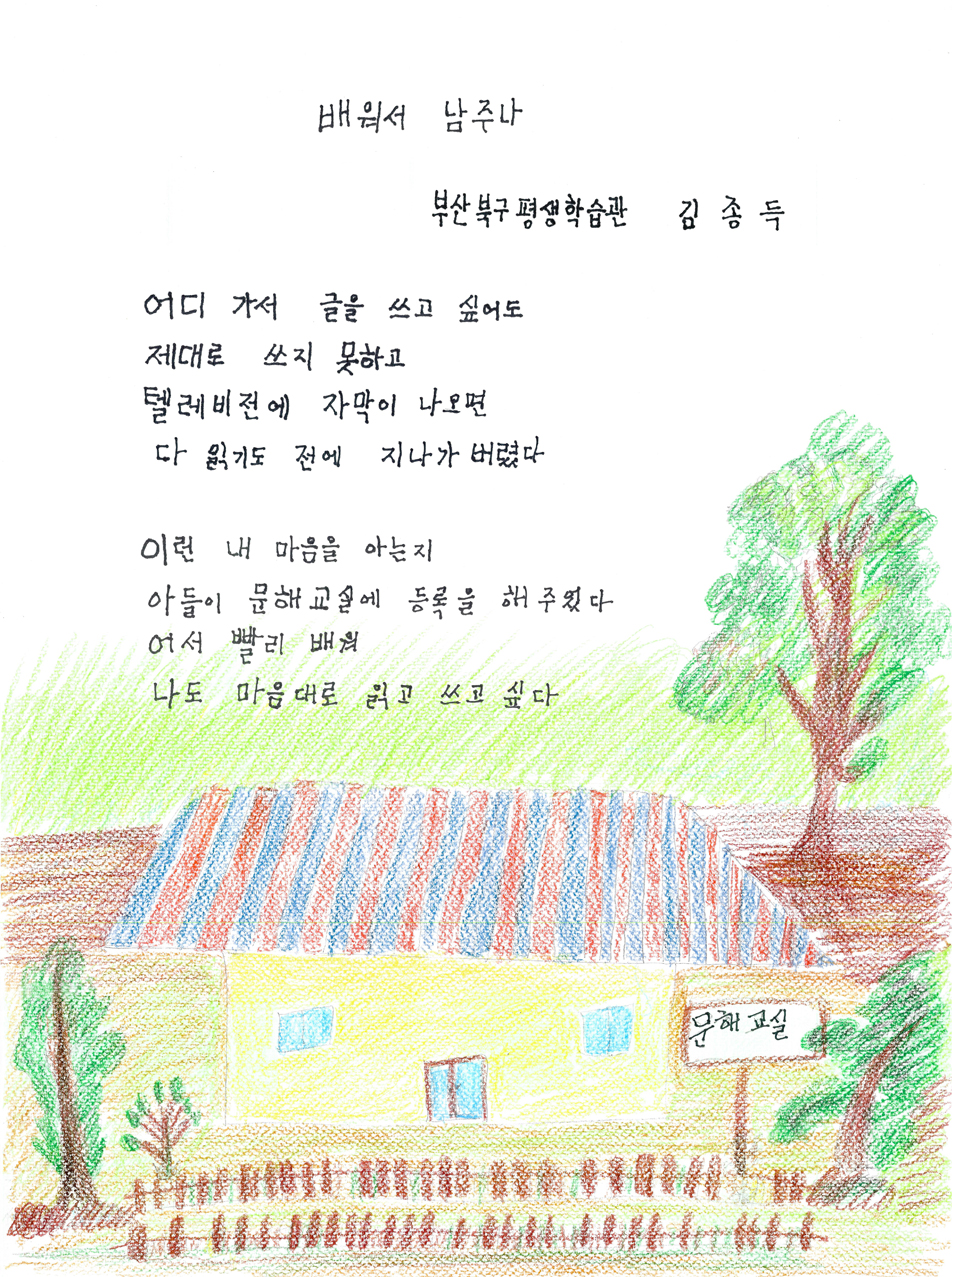 배워서 남주나
부산북구평생학습관 김종득
어디 가서 글을 쓰고 싶어도
제대로 쓰지 못하고
텔레비전에 자막이 나오면
다 읽기도 전에 지나가 버렸다
이런 내 마음을 아는지
아들이 문해교실에 등록을 해 주웠다
어서 빨리 배워
나도 마음대로 읽고 쓰고 싶다
문해교실